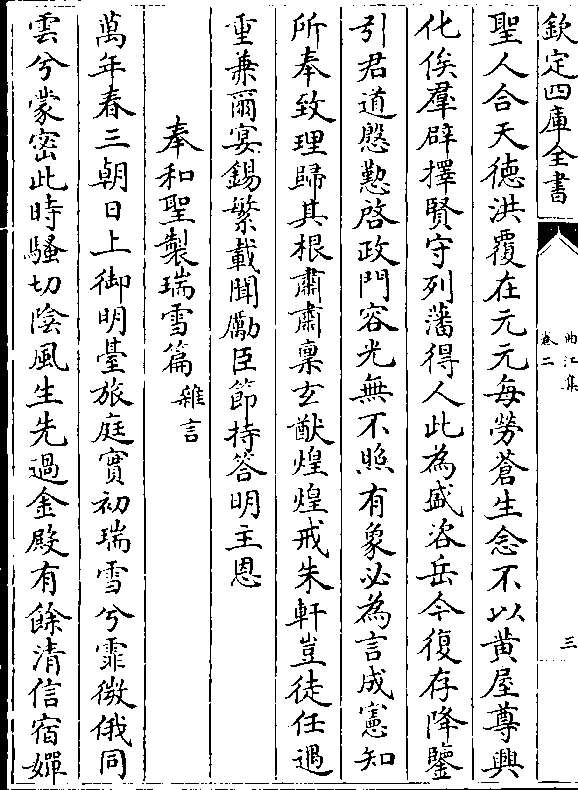 欽定四庫全書
曲江集
卷二
三
聖人合天德洪覆在元元每勞蒼生念不以黃屋尊興
化俟羣辟擇賢守列藩得人此為盛咨岳今復存降鑒
引君道慇懃啓政門容光無不照有象必為言成憲知
所奉致理歸其根肅肅稟玄猷煌煌戒朱軒豈徒任遇
重兼爾宴錫繁載聞勵臣節持答明主恩
奉和聖製瑞雪篇雜言
萬年春三朝日上御明臺旅庭實初瑞雪兮霏微俄同
雲兮蒙密此時騷切陰風生先過金殿有餘清信宿嬋